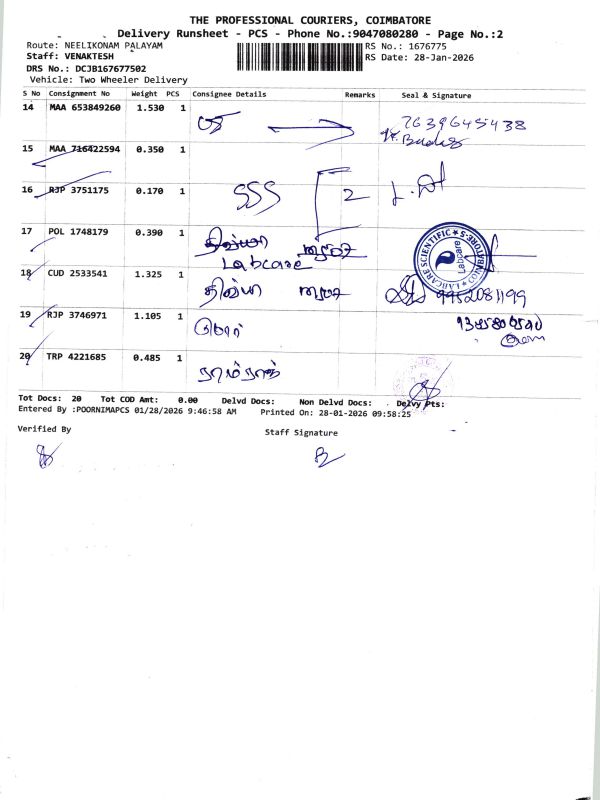 THE PROFESSIONAL COURIERS, COIMBATORE
Delivery Runsheet - PCS - Phone No.:9047080280 - Page No.:2
Route: NEELIKONAM PALAYAM
RS No.: 1676775
Staff: VENAKTESH
RS Date: 28-Jan-2026
DRS No.: DCJB167677502
Vehicle: Two Wheeler Delivery
S No Consignment No Weight PCS Consignee Details Remarks Seal & Signature
14 MAA 653849260 1.530 1 7639645438
15 MAA 716422594 0.350 1
16 RJP 3751175 0.170 1 SSS 2
17 POL 1748179 0.390 1
Labcare
LABCARE SCIENTIFIC STORES COIMBATORE
Labcare
18 CUD 2533541 1.325 1 திவ்யா 9952081199
19 RJP 3746971 1.105 1
20 TRP 4221685 0.485 1 ராம்ராத்
Tot Docs: 20 Tot COD Amt: 0.00 Delvd Docs: Non Delvd Docs: Delvy Pts:
Entered By :POORNIMAPCS 01/28/2026 9:46:58 AM Printed On: 28-01-2026 09:58:25
Verified By
Staff Signature